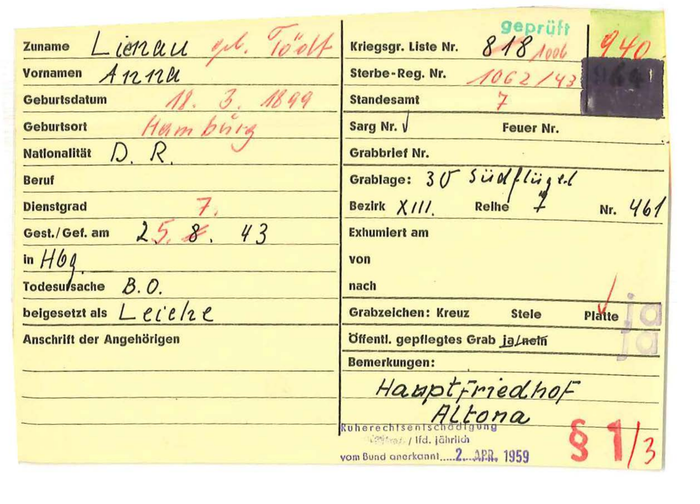 geprüft
Zuname Lienau geb. Tödt
Vornamen Anna
Geburtsdatum 18. 3. 1899
Geburtsort Hamburg
Nationalität D. R.
Beruf
Dienstgrad
7.
Gest./Gef. am 25. 8. 43
in Hbg.
Todesursache B.O.
beigesetzt als Leiche
Anschrift der Angehörigen
Kriegsgr. Liste Nr. 818 1006 940
Sterbe-Reg. Nr. 1062/43
Standesamt 7
Sarg Nr. Feuer Nr.
Grabbrief Nr.
Grablage: 30 Südflügel
Bezirk XIII. Reihe 7 Nr. 461
Exhumiert am
von
nach
Grabzeichen: Kreuz Stele Platte ja
Öffentl. gepflegtes Grab ja/nein ja
Bemerkungen:
Hauptfriedhof
Altona
Ruherechtsentschädigung
/ lfd. jährlich
vom Bund anerkannt 2. APR. 1959
§ 1/3